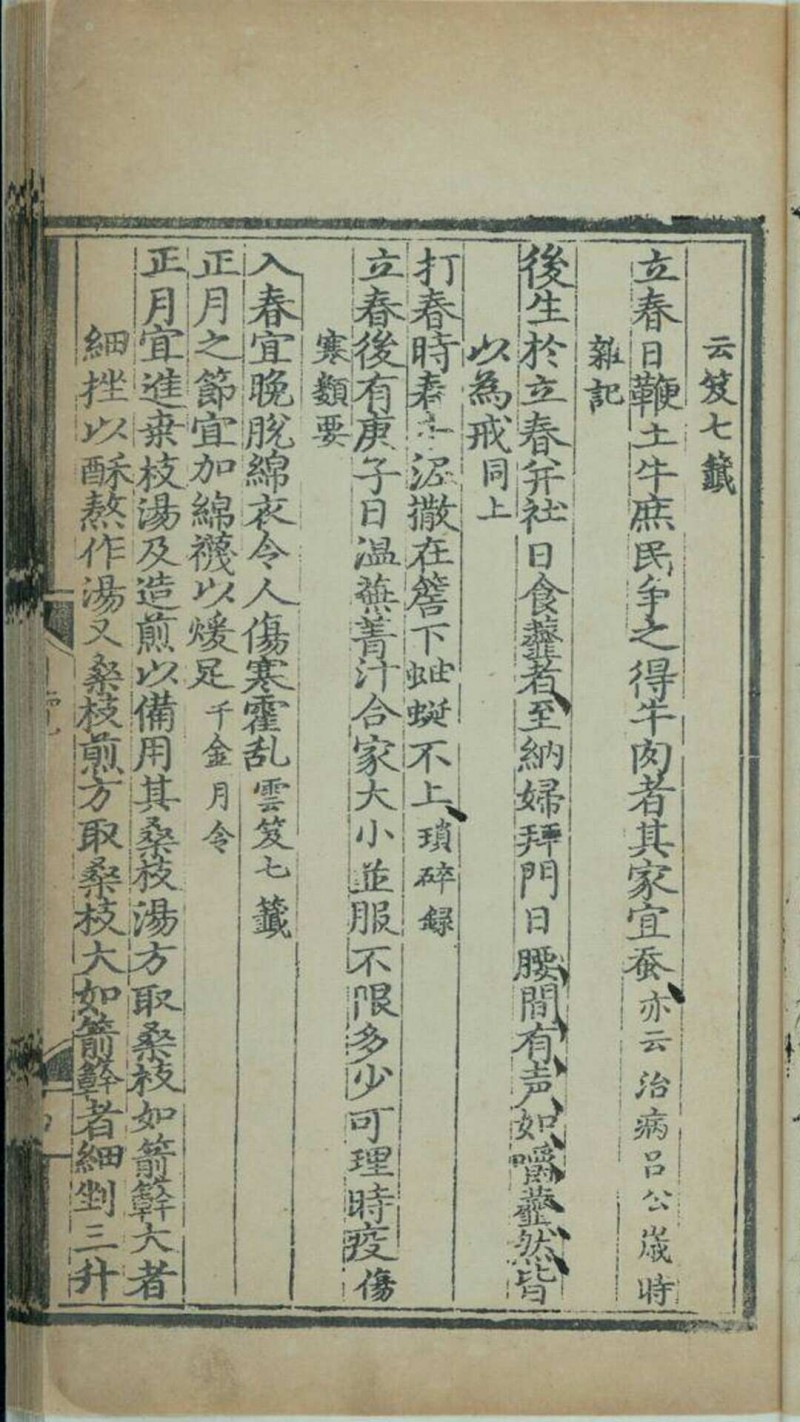 云笈七籖
立春日鞭土牛庶民争之得牛肉者其家宜蚕亦云治病吕公嵗時
雜記
後生於立春并社日食虀者至納婦拜門日腰間有声如嚼虀然皆
以為戒同上
打春時春土泥撒在簷下蚰蜒不上瑣碎録
立春後有庚子日温蕪菁汁合家大小並服不限多少可理時疫傷
寒類要
入春宜晚脫綿衣令人傷寒霍乱雲笈七籖
正月之節宜加綿襪以煖足千金月令
正月宜進桒枝湯及造煎以備用其桑枝湯方取桑枝如箭簳大者
細挫以酥熬作湯又桑枝煎方取桑枝大如箭簳者細剉三升